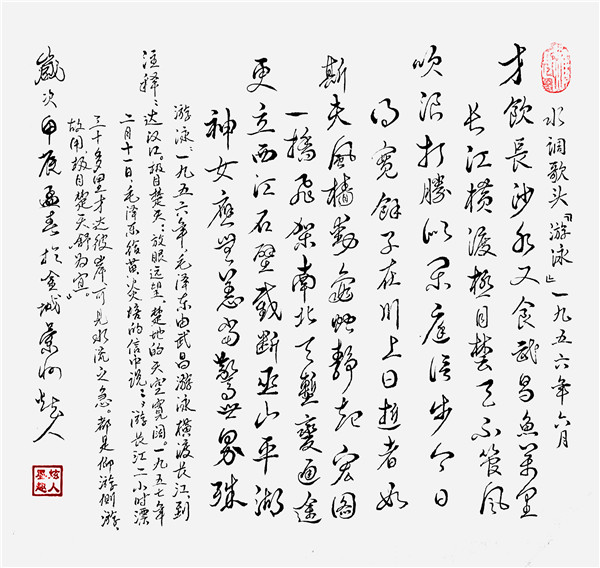 水调歌头「游泳」一九五六年六月
才飲長沙水又食武昌魚萬里
长江横渡極目楚天不管風
吹浪打勝似闲庭信步今日
得寬餘子在川上曰逝者如
斯夫風檣動龜蛇静起宏图
一橋飛架南北天塹變通途
更立西江石壁截断巫山平湖
神女應無恙當驚世界殊
游泳：一九五六年，毛泽东由武昌游泳横渡长江到
注释：达汉口。极目楚天：放眼远望，楚地的天空宽阔。一九五七年
二月十一日，毛泽东给黄炎培的信中说：游长江二小时漂
三十多里才达彼岸，可见水流之急。都是仰游侧游，
故用“极目楚天舒”为宜。
歲次甲辰孟春於金城蘭州炫人